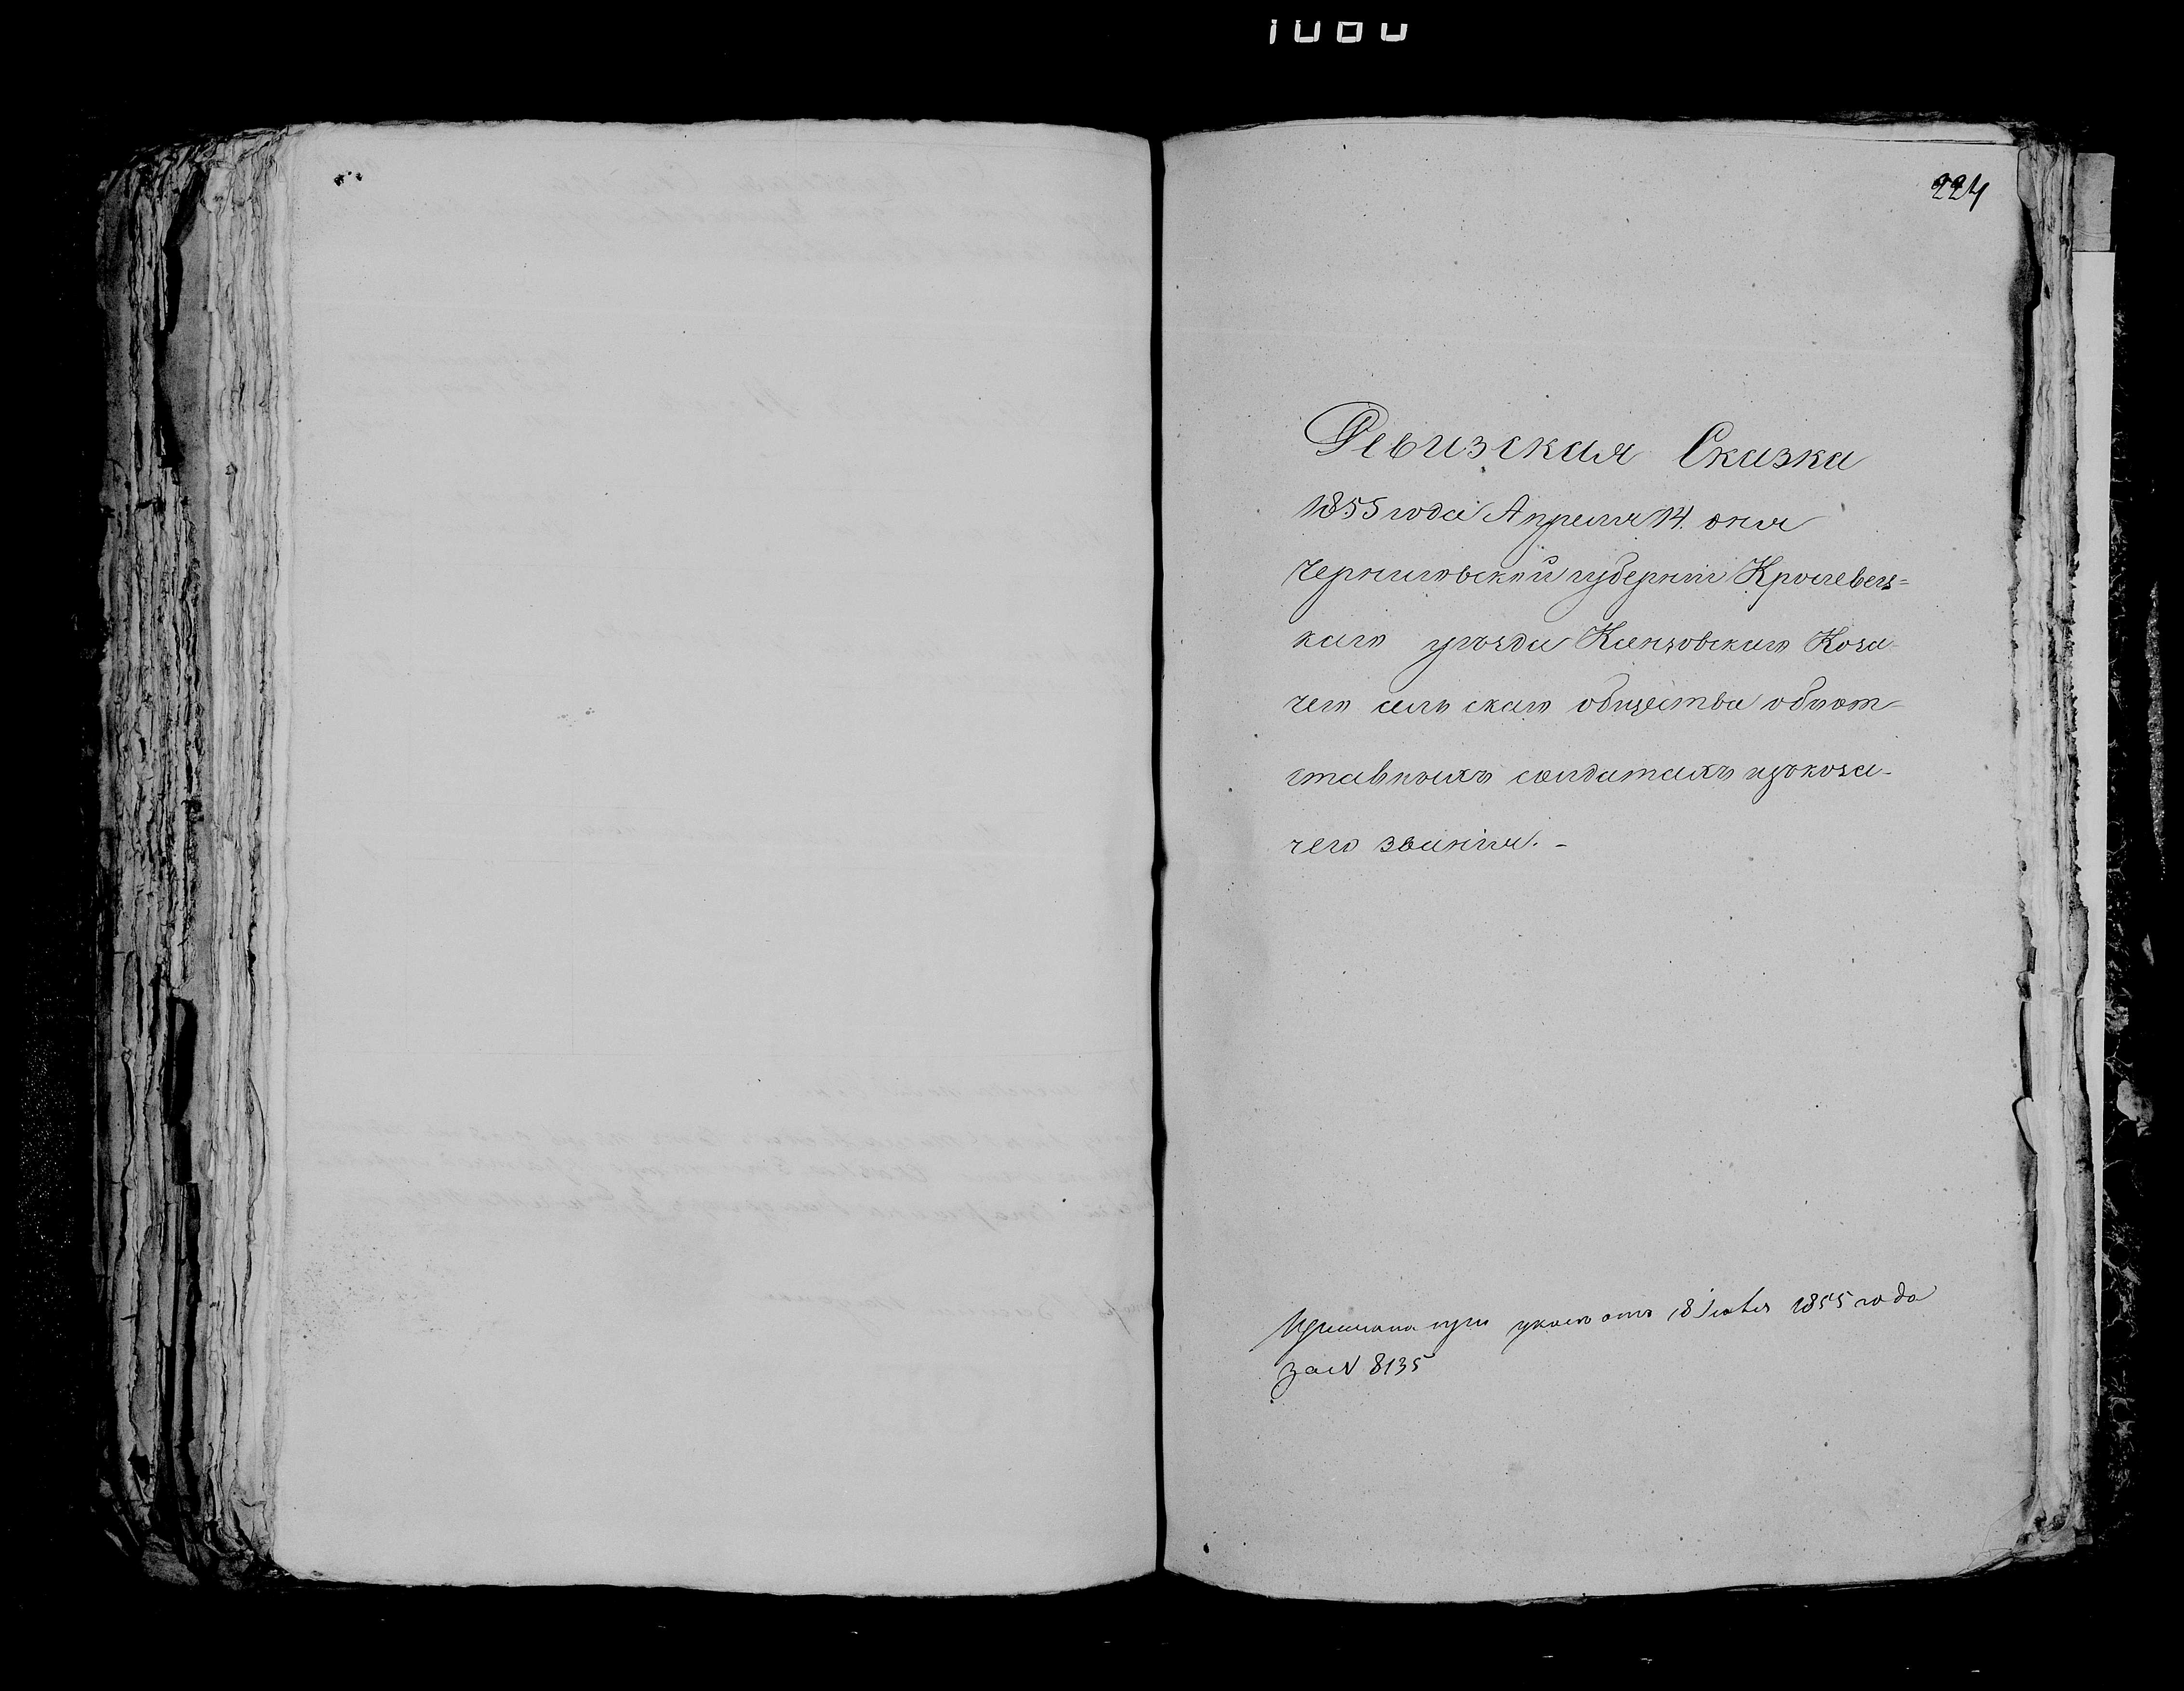 224
Ревизская Сказка
1855 года Апреля 14. дня
Черниговской губернии Кролевец=
каго уезда Каензовскаго Коза
чего сельскаго общества объот-
ставныхъ солдатахъ изъкоза-
чего звания. -
Прислана при указе отъ 18 Июля 1855 года
за N 8135